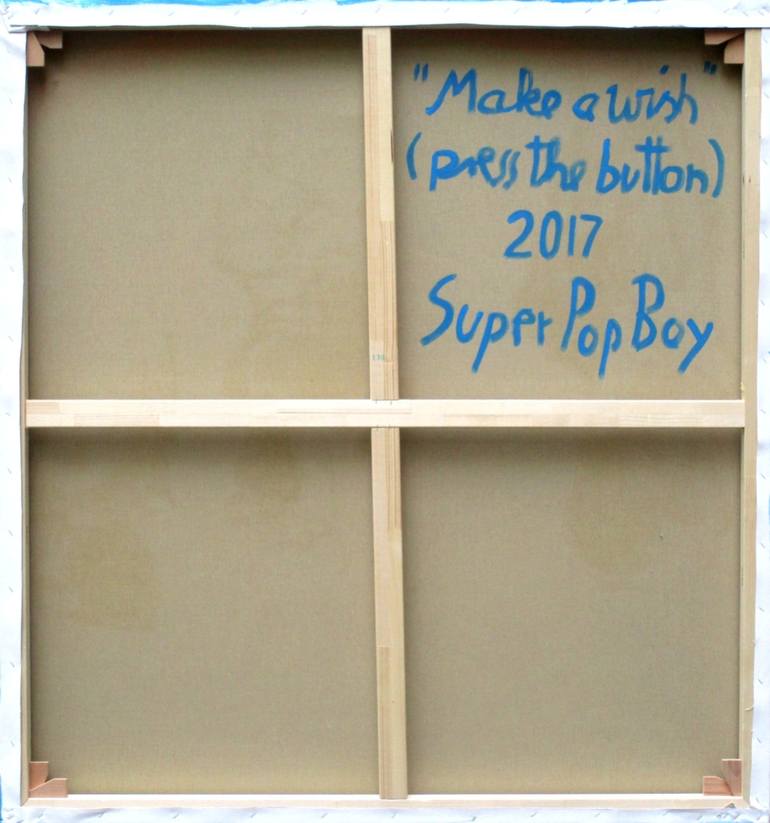 "Make a wish"
(press the button)
2017
Super Pop Boy